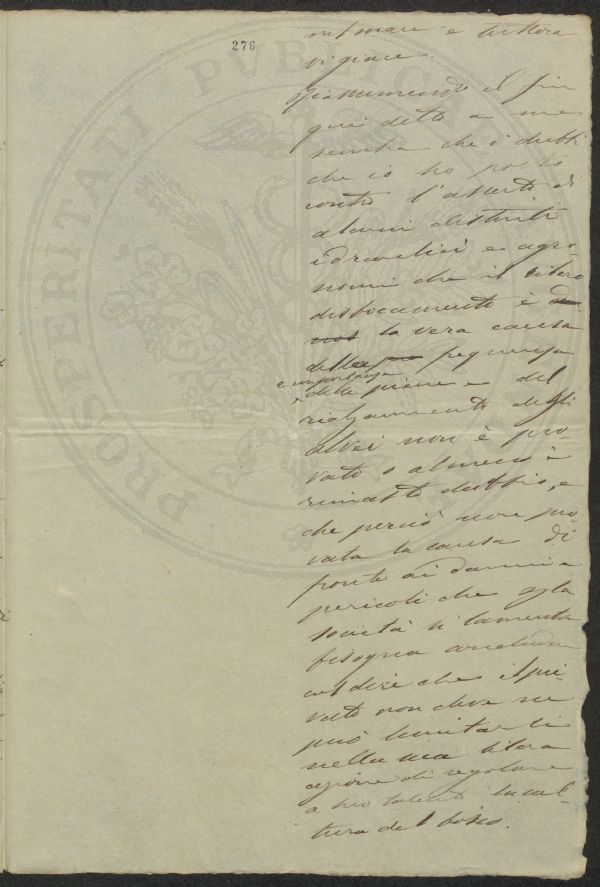 276
nel mare e tuttora
vi giace.
Riassumendo il fin
qui detto a me
sembra che i dubbi
che io ho posto
contro l'asserto di
alcuni distinti
idraulici e agro-
nomi che il libero
disboscamento è
la vera causa
della frequenza
e importanza
delle piene e del
rialzamento degli
alvei non è pro-
vato o almeno è
rimasto dubbio, e
che perciò non pro-
vata la causa di
fronte ai danni e
pericoli che
società si lamenta
bisogna concludere
col dire che il pri-
vato non deve ne
può limitarsi
nella sua libera
azione di regolare
a suo talento la cul-
tura del bosco.
PROSPERITATI PVBLICAE